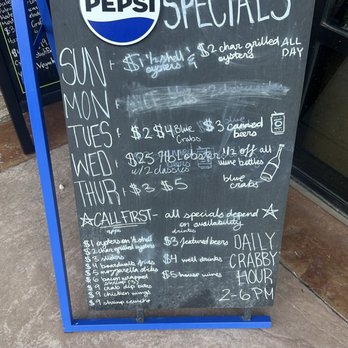 PEPSI
SPECIALS
SUN - $5 ½ shell oysters & $2 char grilled oysters ALL DAY
MON
TUES - $2 $4 Blue Crabs $3 canned beers
WED - $25 1lb Lobster w/2 classics ½ off all wine bottles
blue crabs
THUR - $3 $5
CALL FIRST - all specials depend on availability
apps
$1 oysters on ½ shell
$2 char grilled oysters
$3 sliders
$4 boardwalk fries
$5 mozzarella sticks
$6 bacon wrapped shrimp (3)
$9 crab dip bites
$9 chicken wings
$9 shrimp crunchy
drinks
$3 featured beers
$4 well drinks
$5 house wines
DAILY
CRABBY
HOUR
2-6 PM